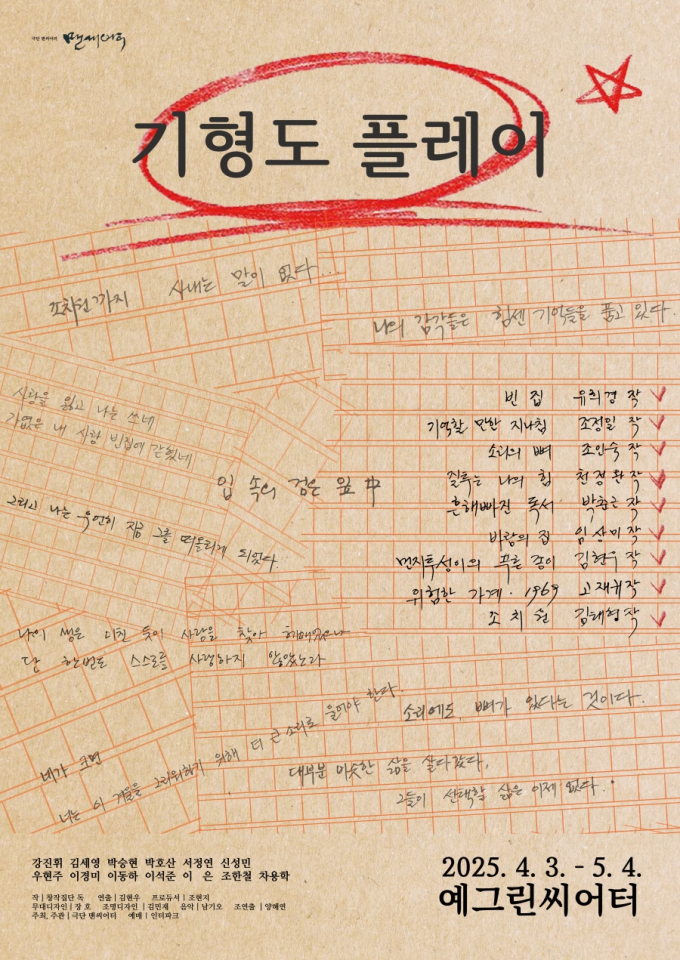 극단 맨씨어터 맨씨어터
기형도 플레이
조치원까지 사내는 말이 없다...
나의 감각들은 힘센 기억들을 품고 있다.
사랑을 잃고 나는 쓰네
가엾은 내 사랑 빈집에 갇혔네
빈 집 유희경 작
기억할 만한 지나침 조정일 작
소리의 뼈 조인숙 작
질투는 나의 힘 천정완 작
흔해빠진 독서 박춘근 작
바람의 집 임상미 작
먼지투성이의 푸른 종이 김현우 작
위험한 가계·1969 고재귀 작
조치원 김태형 작
입 속의 검은 잎 中
그리고 나는 우연히 지금 그를 떠올리게 되었다
나의 생은 미친 듯이 사랑을 찾아 헤매었으나
단 한번도 스스로를 사랑하지 않았노라
네가 크면
너는 이 겨울을 그리워하기 위해 더 큰 소리로 울어야 한다
소리에도 뼈가 있다는 것이다.
대부분 비슷한 삶을 살다갔다,
그들이 선택할 삶은 이제 없다.
강진휘 김세영 박승현 박호산 서정연 신성민
우현주 이경미 이동하 이석준 이 은 조한철 차용학
작 | 창작집단 독 연출 | 김현우 프로듀서 | 조현지
무대디자인 | 장 호 조명디자인 | 김민재 음악 | 남기오 조연출 | 양해연
주최, 주관 | 극단 맨씨어터 예매 | 인터파크
2025. 4. 3. - 5. 4.
예그린씨어터